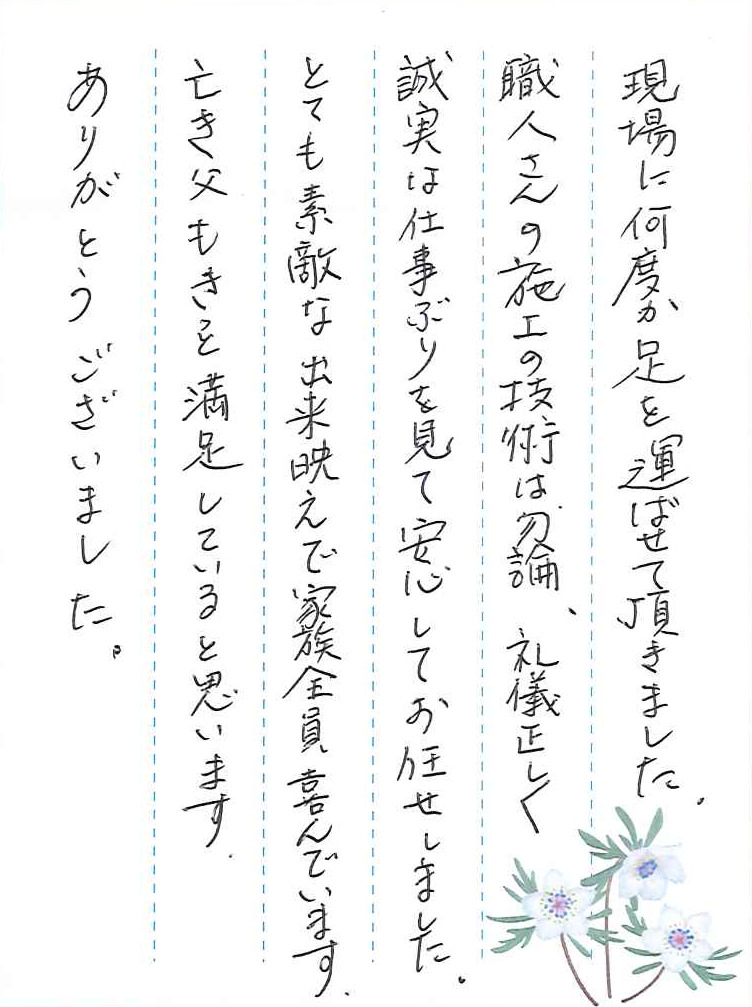 現場に何度か足を運ばせて頂きました。
職人さんの施工の技術は勿論、礼儀正しく
誠実な仕事ぶりを見て安心してお任せしました。
とても素敵な出来映えで家族全員喜んでいます。
亡き父もきっと満足していると思います。
ありがとうございました。